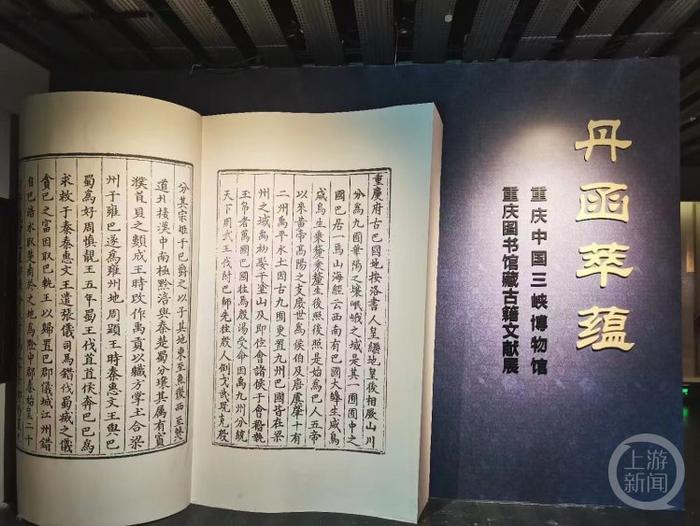 丹函萃蕴
重庆中国三峡博物馆
重庆图书馆藏古籍文献展
重慶府古巴國地按洛書人皇繼地皇後相厥山川
分為九囿華陽之壤岷峨之域是其一囿囿中之
國巴居一焉山海經云西南有巴國大皥生咸鳥
咸鳥生乗釐乗釐生後照後照是始為巴人五帝
以來黃帝高陽之支庶世為侯伯及唐虞肇十有
二州禹平水土因古九囿更置九州巴國皆在梁
州之域禹初娶于塗山及即位會諸侯于會稽執
玉帛者萬國巴國往焉殷湯受命因禹九州分統
天下周武王伐紂巴師先往殷人倒戈武既克殷
分其宗姬于巴爵之以子其地東至魚復西至僰
道北接漢中南極黔涪與秦楚蜀分壤其屬有賨
濮苴貝之類成王時改作禹貢以職方掌土合梁
州于雍巴遂為雍州地周顯王時秦惠文王與巴
蜀為好周慎靚王五年蜀王伐苴苴侯奔巴巴為
求救于秦秦惠文王遣張儀司馬錯伐蜀滅之儀
貪巴之富因取巴執王以歸置巴郡儀城江州錯
自巴涪水取楚商於之地為黔中郡秦始皇二十
上游新闻